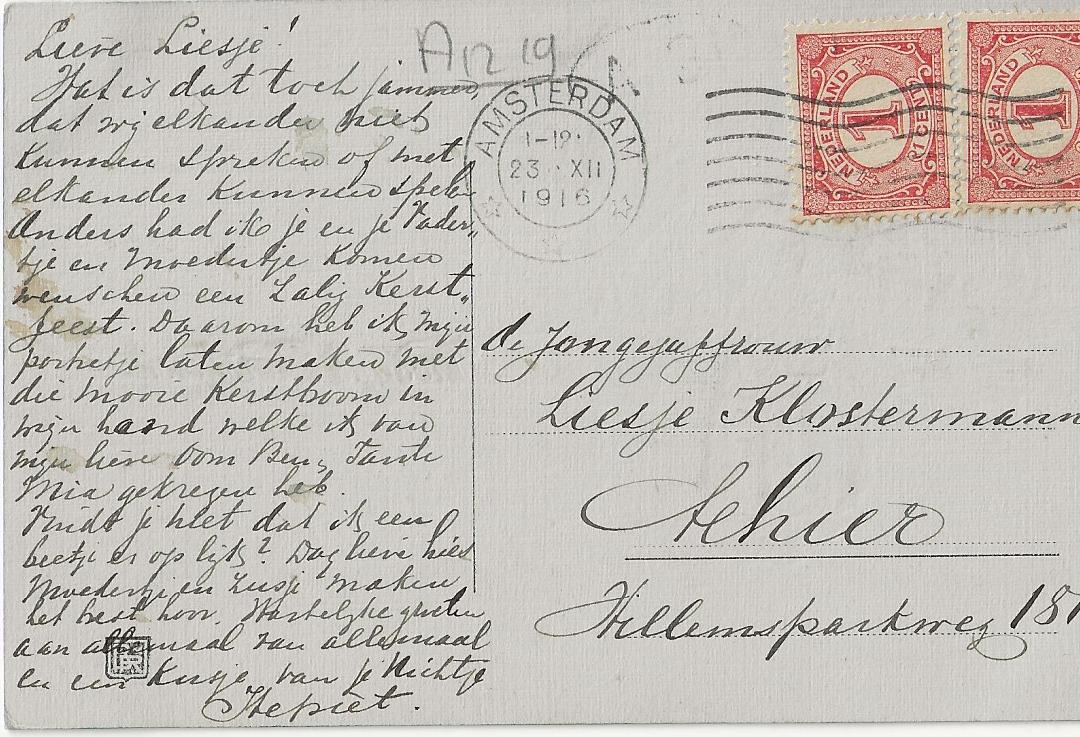 Lieve Liesje!
Wat is dat toch jammer,
dat wij elkander niet
kunnen spreken of met
elkander kunnen spelen
Anders had ik je en je Vader„
tje en Moedertje komen
wenschen een Zalig Kerst„
feest. Daarom heb ik mijn
portretje laten maken met
die mooie Kerstboom in
mijn hand welke ik van
mijn lieve Oom Ben, Tante
Mia gekregen heb.
Vindt je niet dat ik een
beetje er op lijk? Dag lieve Lies
Moedertje en Zusje maken
het best hoor. Hartelijke groeten
aan allemaal van allemaal
en een Kusje van je Nichtje
A 12 19
AMSTERDAM
1-12
23 XII
1916
NEDERLAND
1
1 CENT
NEDERLAND
1
de Jongejuffrouw
Liesje Klostermann
Alhier
Willemsparkweg 181